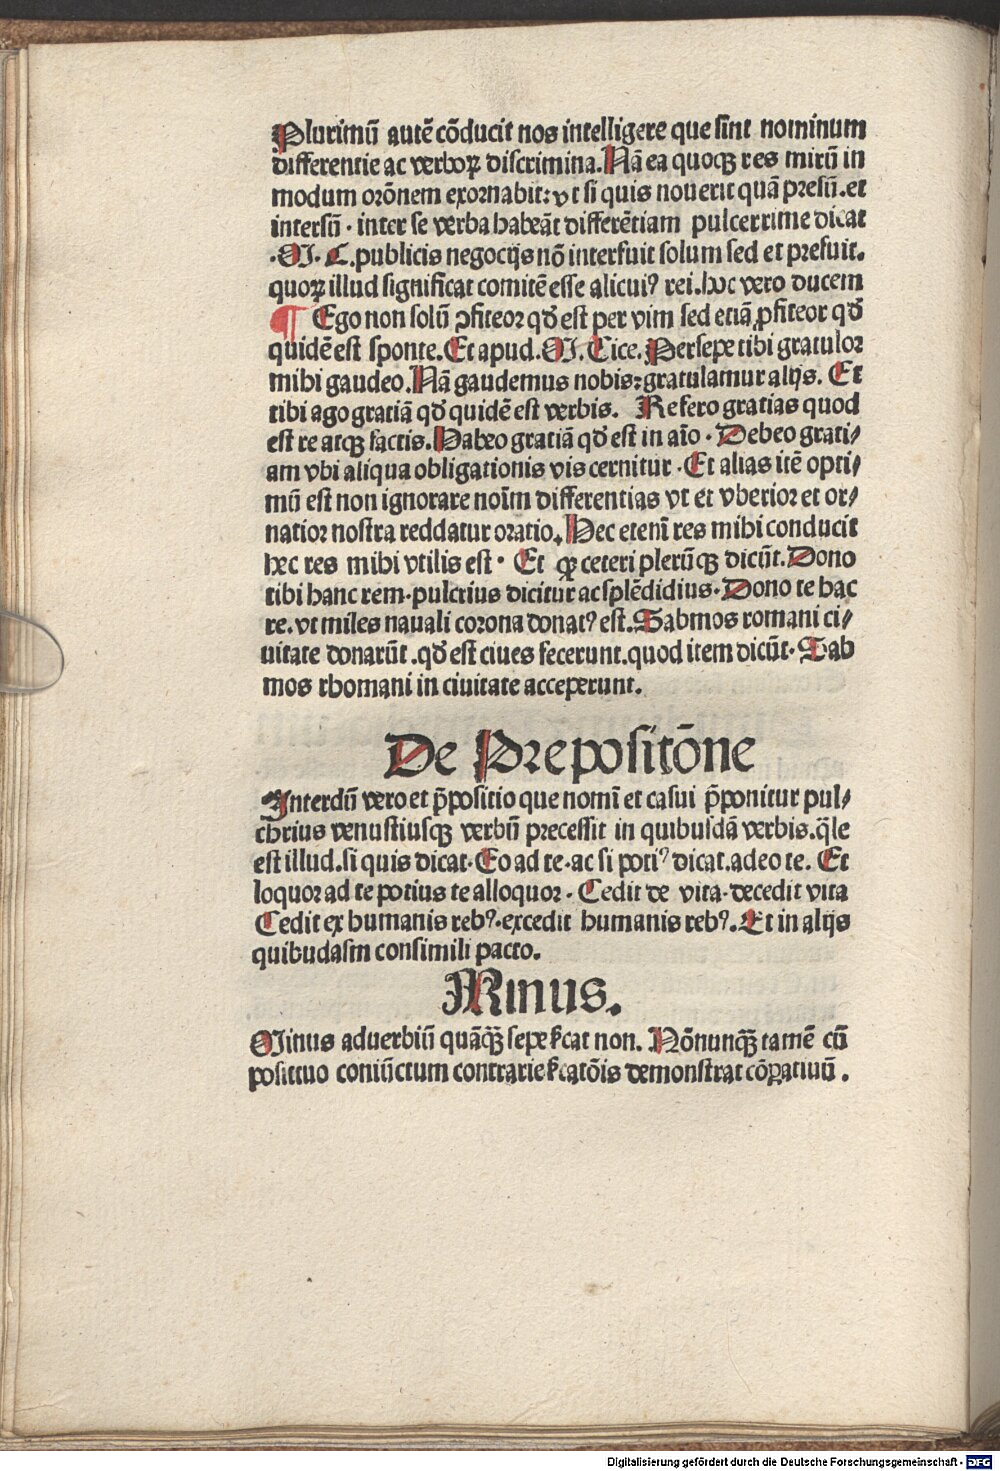 Plurimū autē cōducit nos intelligere que sint nominum
differentie ac verboꝝ discrimina. Nā ea quoqꝫ res mirū in
modum orōnem exornabit: vt si quis nouerit quā presū. et
intersū · inter se verba habeāt differētiam pulcerrime dicat
·M· C. publicis negocijs nō interfuit solum sed et prefuit.
quoꝝ illud significat comitē esse alicuiꝰ rei. hoc vero ducem
¶ Ego non solū ꝓfiteor qđ est per vim sed etiā ꝓfiteor qđ
quidē est sponte. Et apud. M. Cice. Persepe tibi gratulor
mihi gaudeo. Nā gaudemus nobis: gratulamur alijs. Et
tibi ago gratiā qđ quidē est verbis. Refero gratias quod
est re atqꝫ factis. Habeo gratiā qđ est in aīo · Debeo grati/
am vbi aliqua obligationis vis cernitur · Et alias itē opti/
mū est non ignorare noīm differentias vt et vberior et or/
natior nostra reddatur oratio. Hec etenī res mihi conducit
hec res mihi vtilis est · Et qꝛ ceteri plerūqꝫ dicūt. Dono
tibi hanc rem · pulcrius dicitur ac splēdidius · Dono te hac
re. vt miles nauali corona donatꝰ est. Gabmos romani ci/
uitate donarūt. qđ est ciues fecerunt. quod item dicūt · Gab
mos rhomani in ciuitate acceperunt.
De Prepositōne
Interdū vero et p̄positio que nomī et casui p̄ponitur pul/
chrius venustiusqꝫ verbū precessit in quibusdā verbis. q̄le
est illud. si quis dicat · Eo ad te · ac si potiꝰ dicat. adeo te. Et
loquor ad te potius te alloquor · Cedit de vita · decedit vita
Cedit ex humanis rebꝰ. excedit humanis rebꝰ. Et in alijs
quibudasm consimili pacto.
Minus.
Minus aduerbiū quāqꝫ sepe sīcat non. Nōnunqꝫ tamē cū
posituo coniūctum contrarie sīcatōis demonstrat cōꝑatiuū.
Digitalisierung gefördert durch die Deutsche Forschungsgemeinschaft - DFG